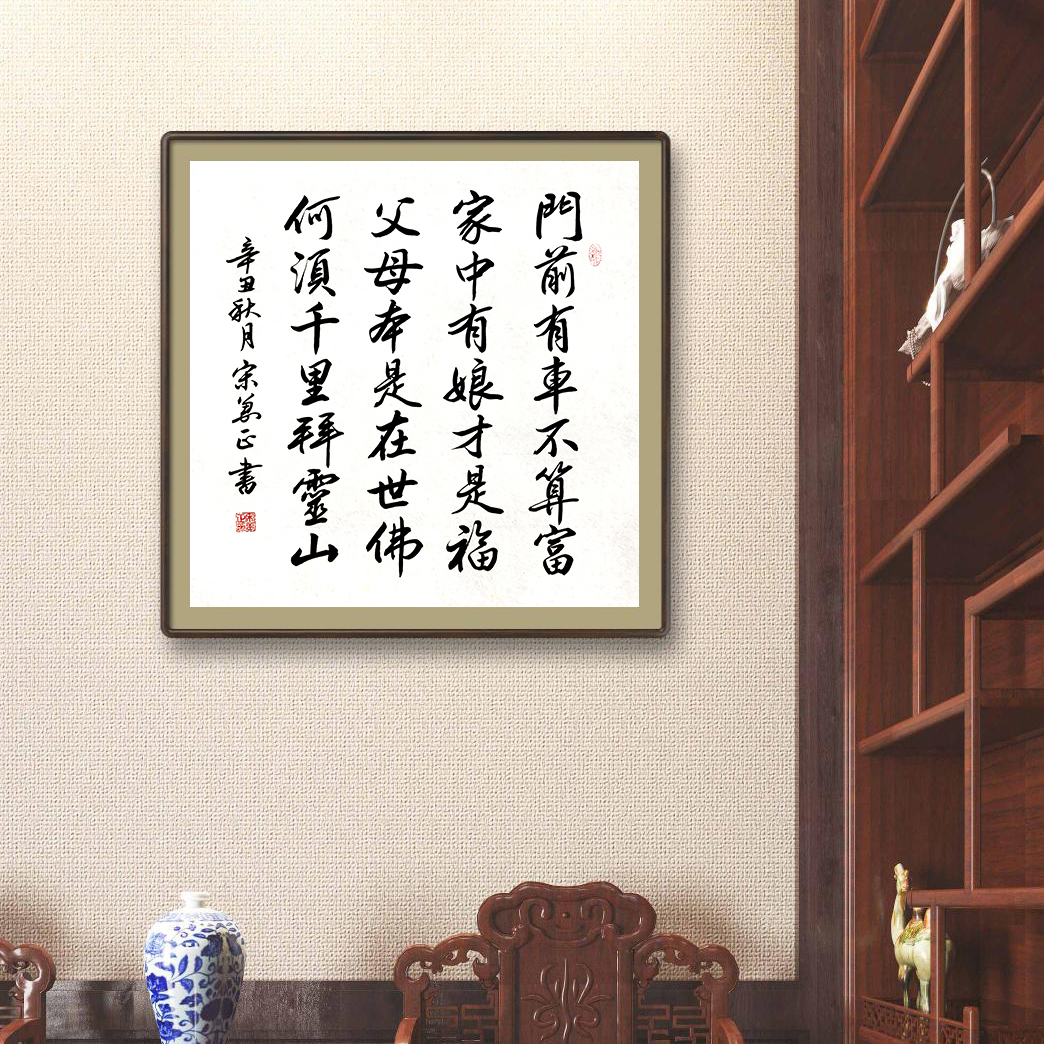 門前有車不算富
家中有娘才是福
父母本是在世佛
何須千里拜靈山
辛丑秋月宗萬正书